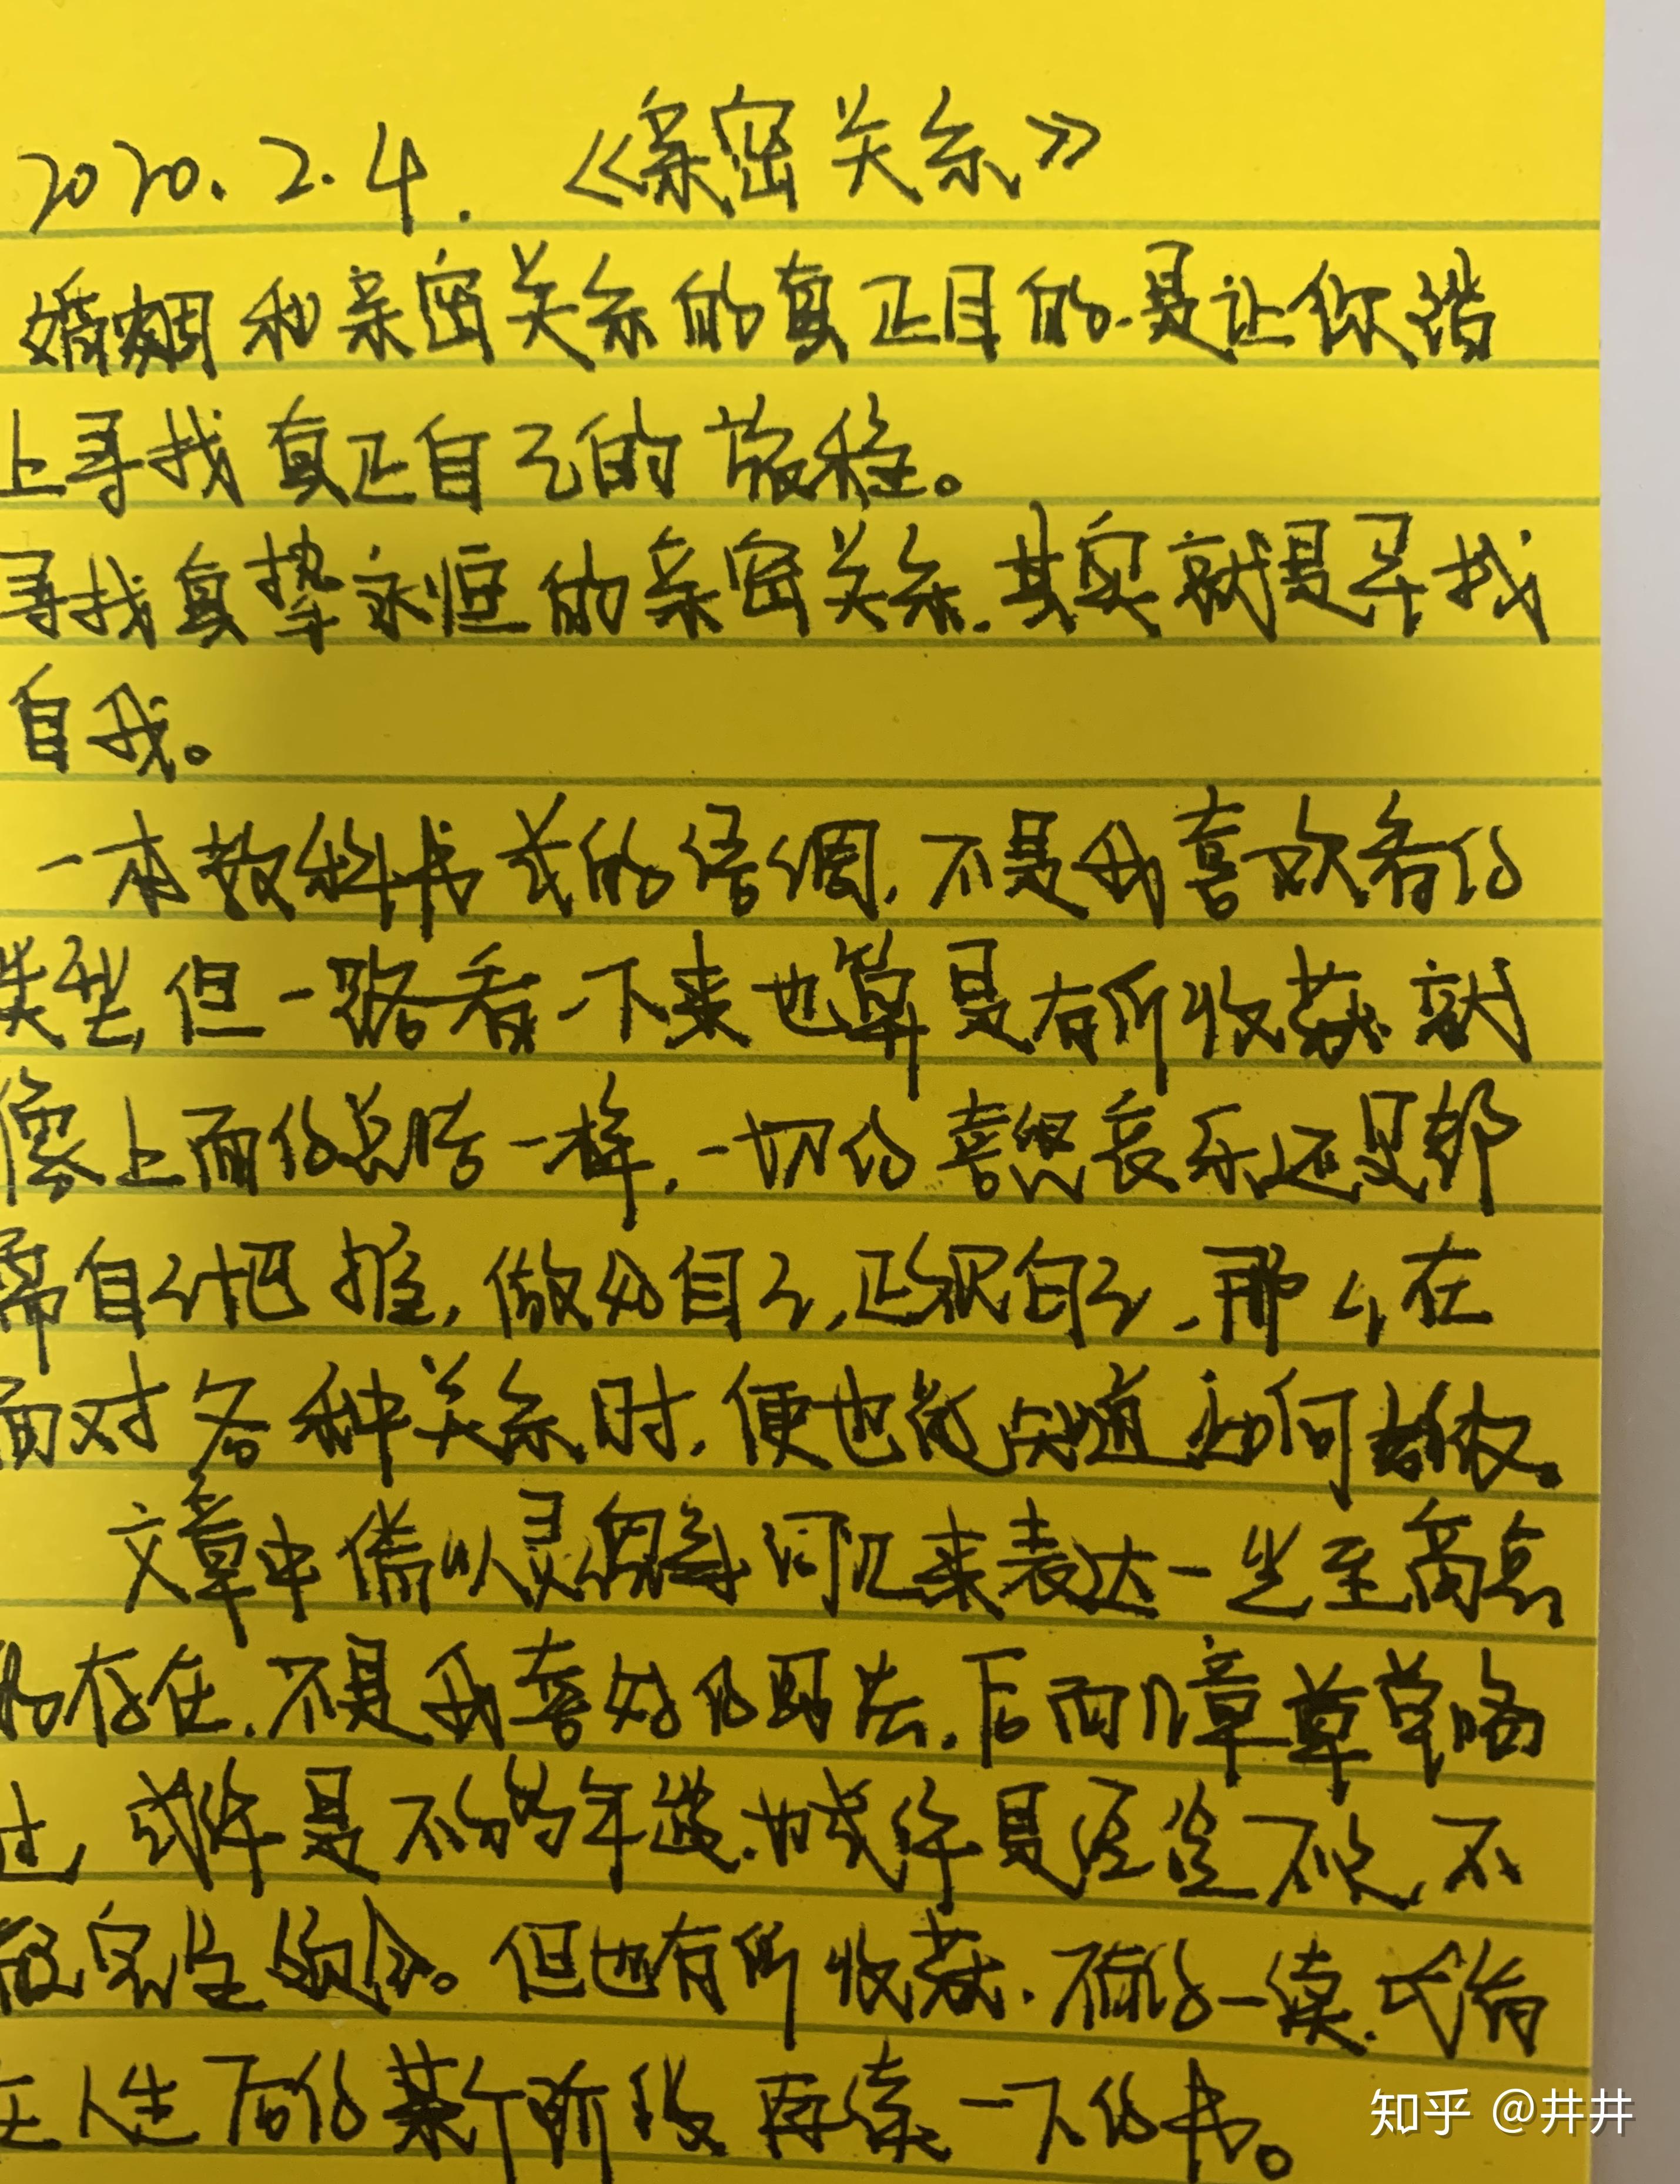 2020.2.4. 《亲密关系》
婚姻和亲密关系的真正目的.是让你踏
上寻找真正自己的旅程。
寻找真挚永恒的亲密关系.其实就是寻找
自我。
一本教科书式的语调,不是我喜欢看的
类型,但一路看下来也算是有所收获.就
像上面的总结一样,一切的喜怒哀乐还是都
需自己把握,做好自己,正视自己,那么在
面对各种关系时,便也能知道如何
文章中借以灵魂等词汇来表达一些至高点
的存在.不是我喜好的司法.后面几章草草略
过,或许是不够年龄.也或许是经验不足,不
很完全。但也有所收获.不值一读.或有
在人生后的某个阶段再读一下的书。
知乎 @井井